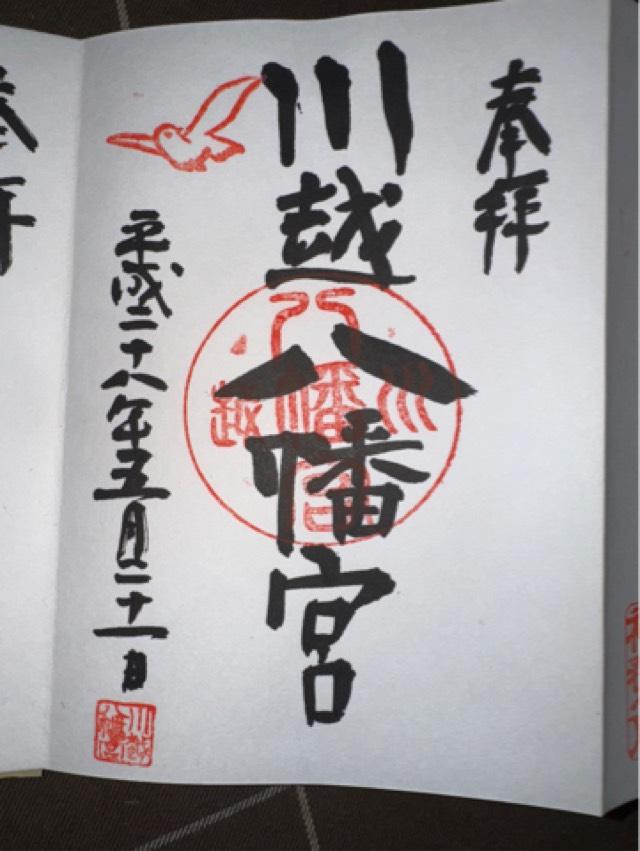 奉拝
川越八幡宮
平成二十八年五月二十一日
川越
八幡宮